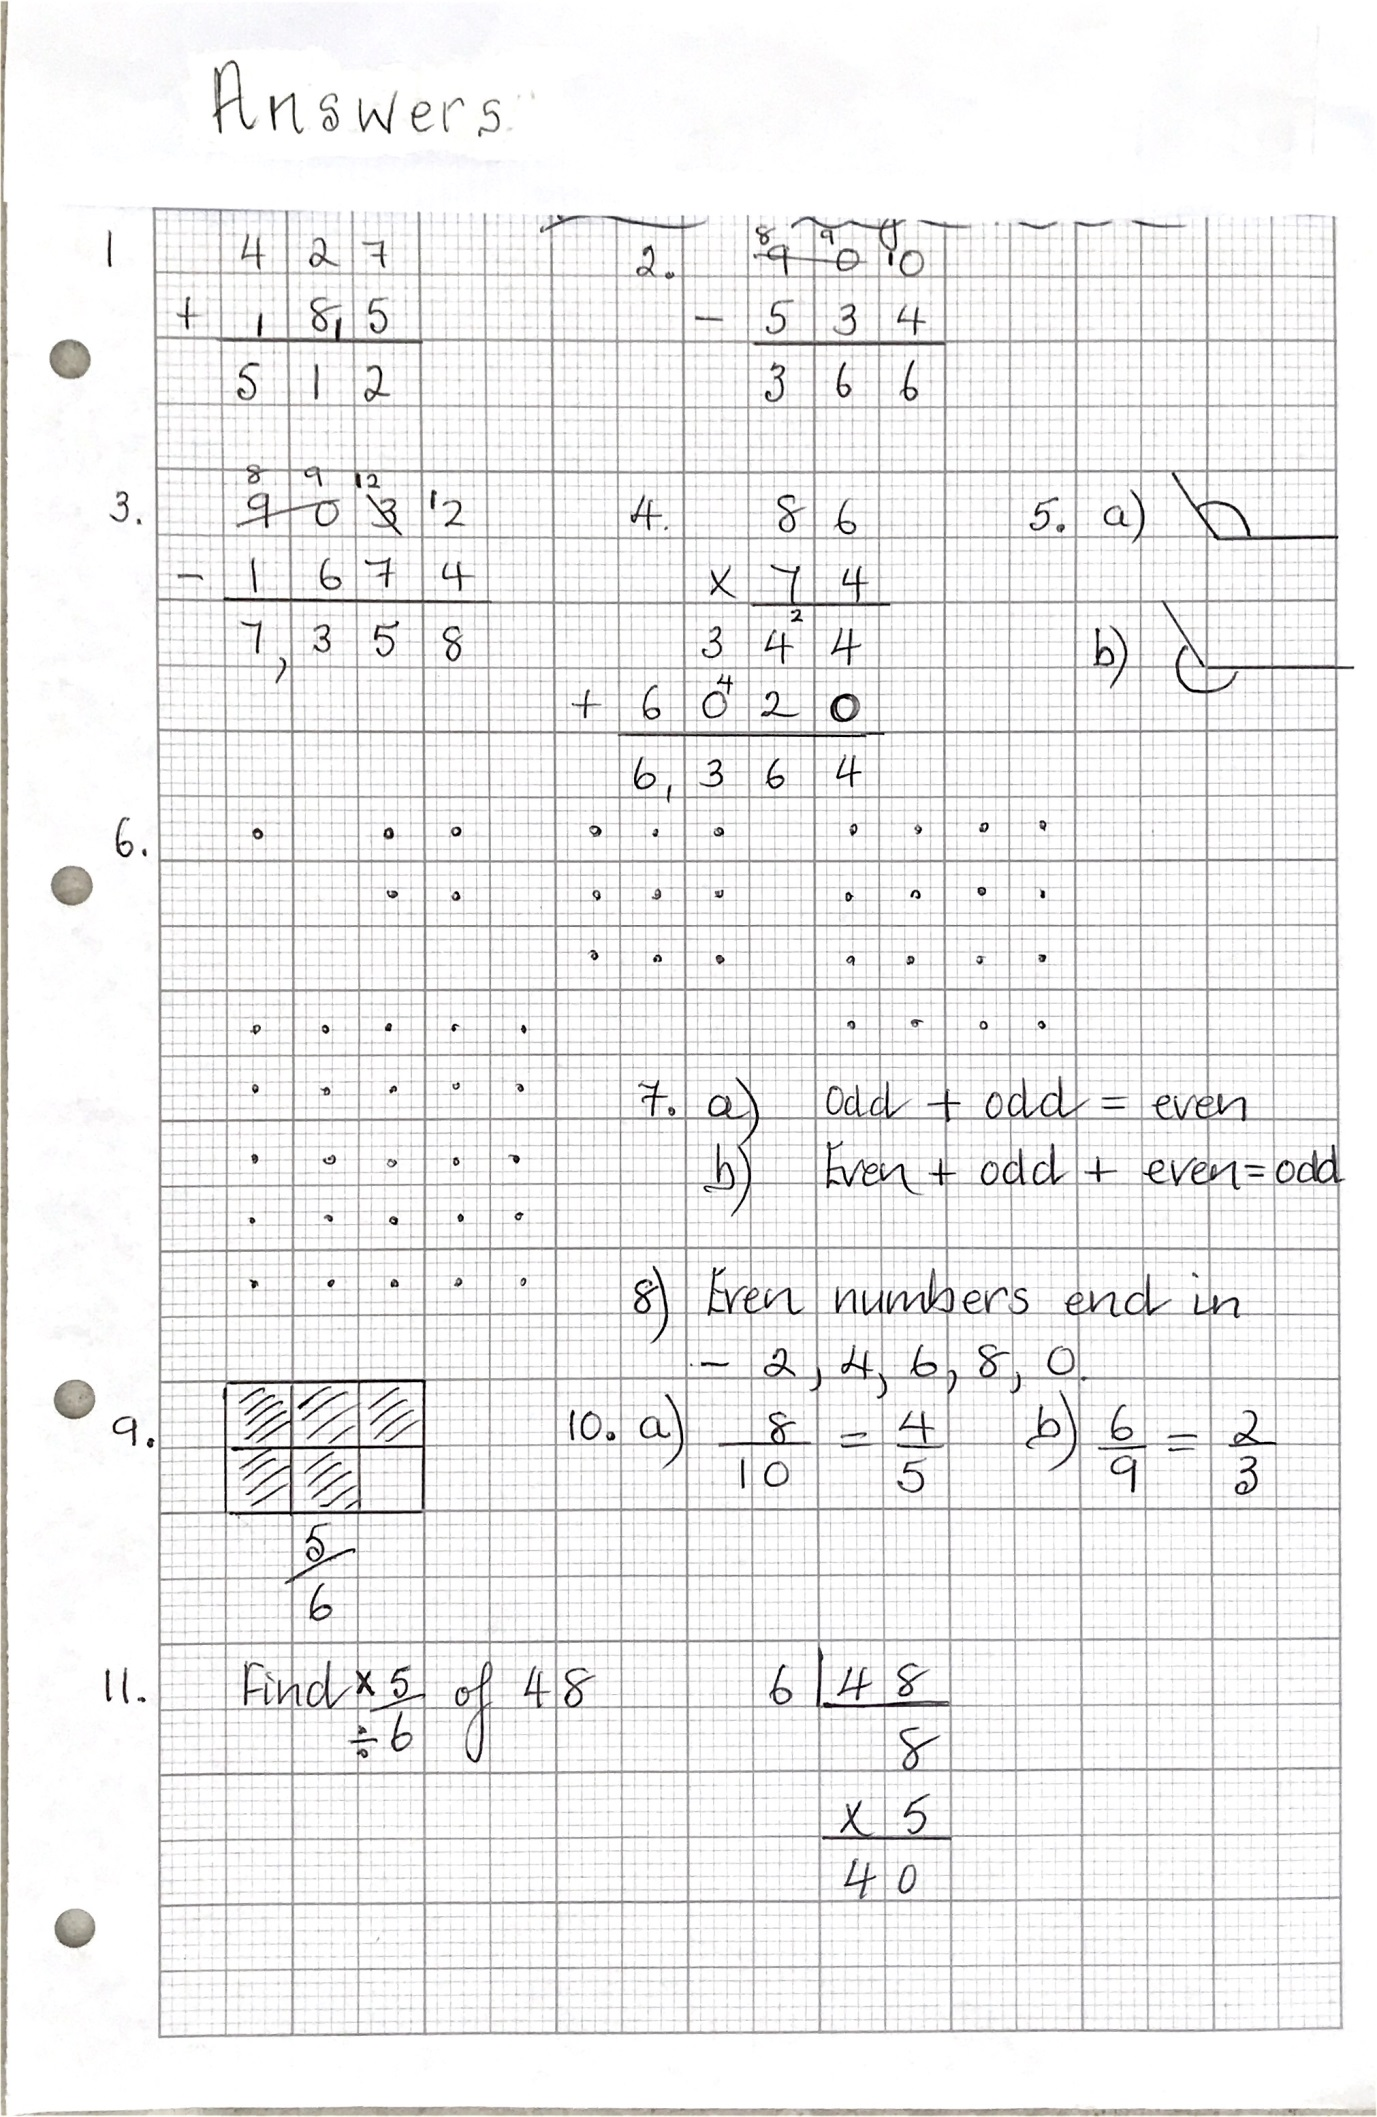 Answers
1 4 2 7
+ 1 8 5
5 1 2
2. 8 9
9 0 10
- 5 3 4
3 6 6
3. 8 9 12
9 0 3 12
- 1 6 7 4
7,3 5 8
4. 8 6
x 7 4
3 4 2 4
+ 6 0 4 2 0
6,3 6 4
5. a)
b)
6.
7. a) Odd + odd = even
b) Even + odd + even = odd
8) Even numbers end in
- 2, 4, 6, 8, 0.
9.
5
6
10. a) 8/10 = 4/5 b) 6/9 = 2/3
11. Find x 5 of 48
÷ 6
6 4 8
8
x 5
4 0